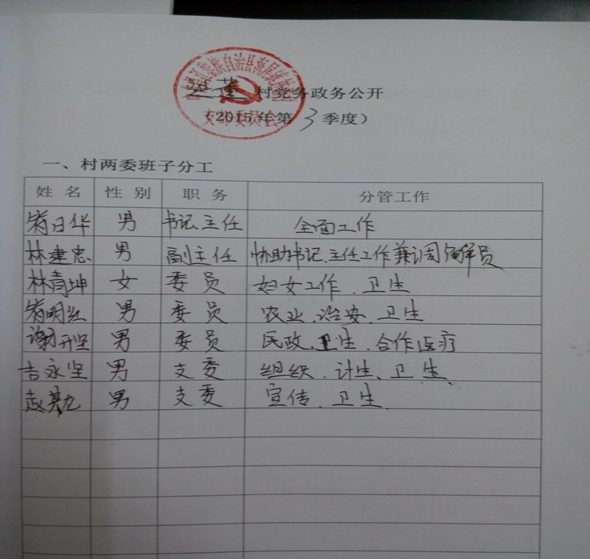 村党务政务公开
（2015年第3季度）
一、村两委班子分工
姓 名 性 别 职 务 分管工作
男 书记主任 全面工作
林建忠 男 副主任 协助书记、主任工作兼调解员
林青坤 女 委员 妇女工作、卫生
男 委员 农业、治安、卫生
男 委员 民政、卫生、合作医疗
吉永坚 男 支委 组织、计生、卫生
男 支委 宣传、卫生